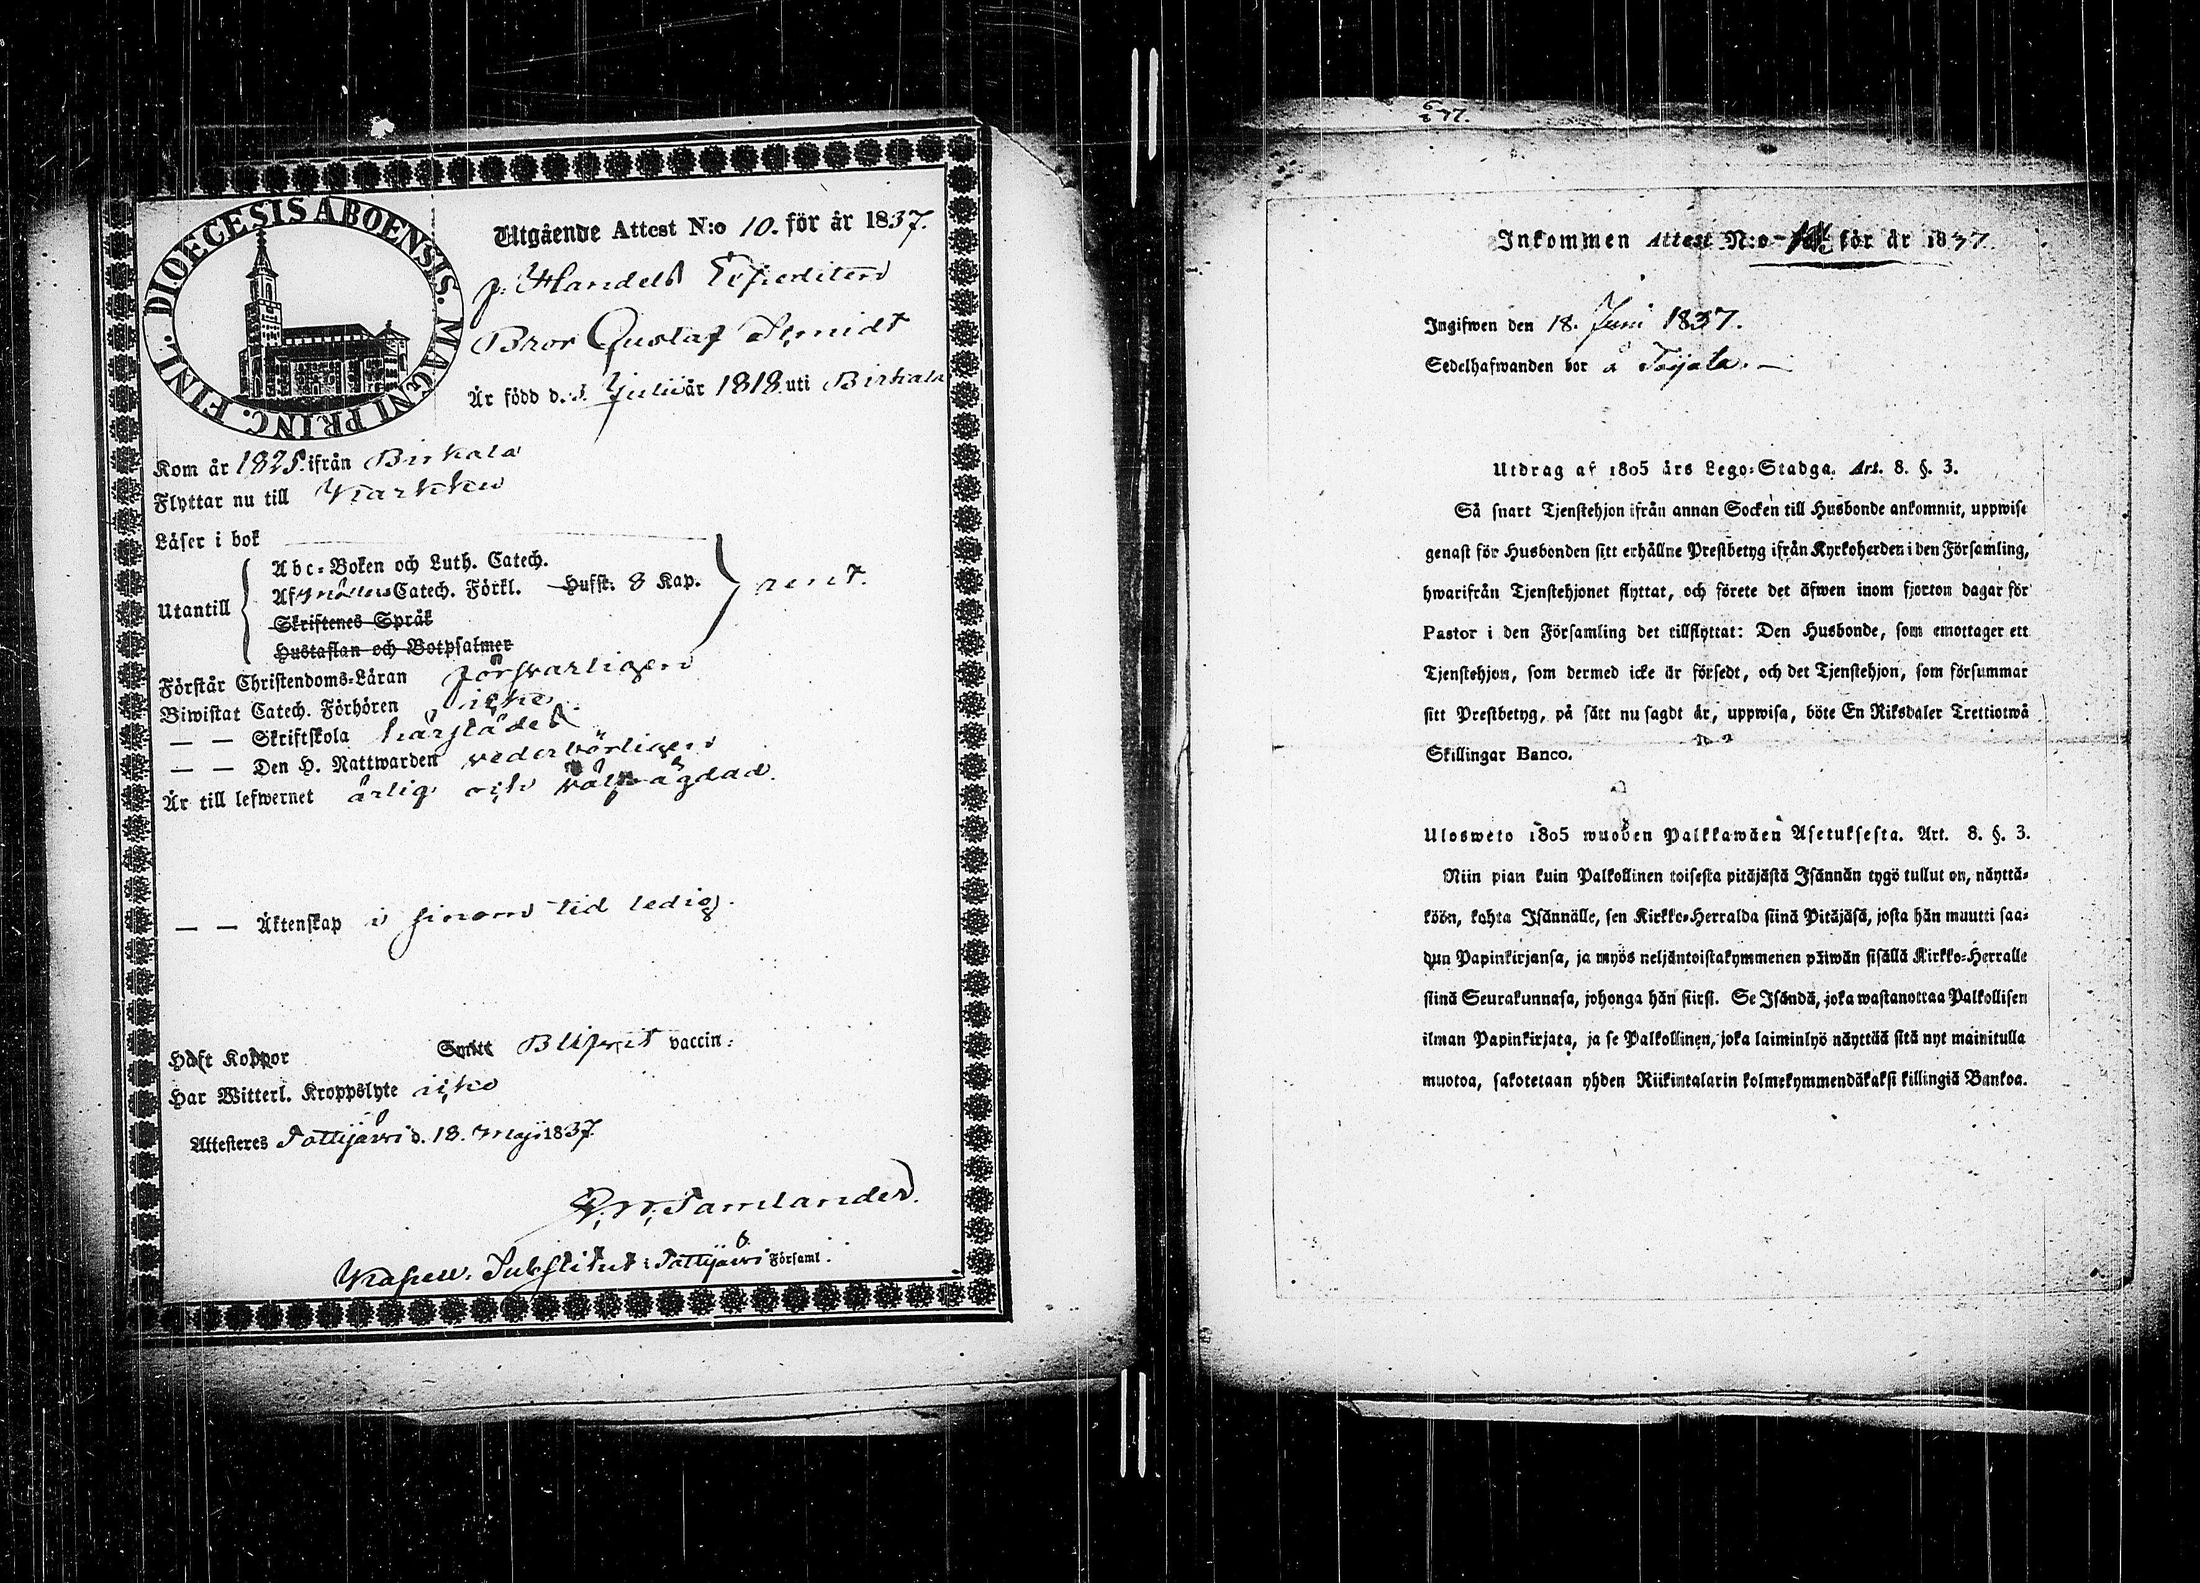 DIOECESIS ABOENSIS. MAGNI PRINC. FINL.
Utgående Attest N:o 10. för år 1837.
f. Handels Expediten
Bror Gustaf Smidt
Är född d. 3. Julii år 1818. uti Birkala
Kom år 1825. ifrån Birkala
Flyttar nu till Karkku
Läser i bok
Utantill
Abc-Boken och Luth. Catech.
Af Möllers Catech. Förkl. Husst. 8 Kap.
rent.
Skriftenes Språk
Hustaflan och Botpsalmer
Förstår Christendoms-Läran försvarligen
Biwistat Catech. Förhören icke
— — Skriftskola härstädes
— — Den H. Nattwarden vederbörligen
Är till lefwernet ärlig och välfrägdad.
— — Äktenskap i sinom tid ledig.
Haft Koppor Blifwit vaccin:
Har Witterl. Kroppslyte icke
Attesteras Pottijärvi d. 18. Maji 1837.
Samlander.
Kapell. Substitut i Pottijärvi Församl.
6/8 37.
Inkommen Attest N:o för år 1837.
Ingifwen den 18. Juni 1837.
Sedelhafwanden bor å Toijala.
Utdrag af 1805 års Lego-Stadga. Art. 8. §. 3.
Så snart Tjenstehjon ifrån annan Socken till Husbonde ankommit, uppwise
genast för Husbonden sitt erhållne Prestbetyg ifrån Kyrkoherden i den Församling,
hwarifrån Tjenstehjonet flyttat, och förete det äfwen inom fjorton dagar för
Pastor i den Församling det tillflyttat: Den Husbonde, som emottager ett
Tjenstehjon, som dermed icke är försedt, och det Tjenstehjon, som försummar
sitt Prestbetyg, på sätt nu sagdt är, uppwisa, böte En Riksdaler Trettiotwå
Skillingar Banco.
Ulosweto 1805 wuoden Palkkawäen Asetuksesta. Art. 8. §. 3.
Niin pian kuin Palkollinen toisesta pitäjästä Isännän tygö tullut on, näyttä-
köön, kohta Isännälle, sen Kirkko-Herralda siinä Pitäjäsä, josta hän muutti saa-
dun Papinkirjansa, ja myös neljäntoistakymmenen päiwän sisällä Kirkko-Herralle
siinä Seurakunnasa, johonga hän siirsi. Se Isändä, joka wastanottaa Palkollisen
ilman Papinkirjata, ja se Palkollinen, joka laiminlyö näyttää sitä nyt mainitulla
muotoa, sakotetaan yhden Riikintalarin kolmekymmendäkaksi killingiä Bankoa.